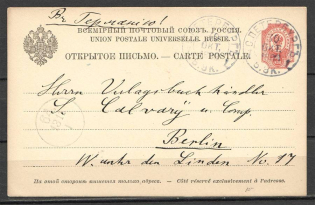 Въ Германію!
ВСЕМІРНЫЙ ПОЧТОВЫЙ СОЮЗЪ. РОССІЯ.
UNION POSTALE UNIVERSELLE. RUSSIE.
ОТКРЫТОЕ ПИСЬМО. — CARTE POSTALE.
Herrn Verlagsbuchhändler
S. Calvary u. Comp.
Berlin
W. unter den Linden No. 17
На этой сторонѣ пишется только адресъ. — Côté réservé exclusivement à l'adresse.